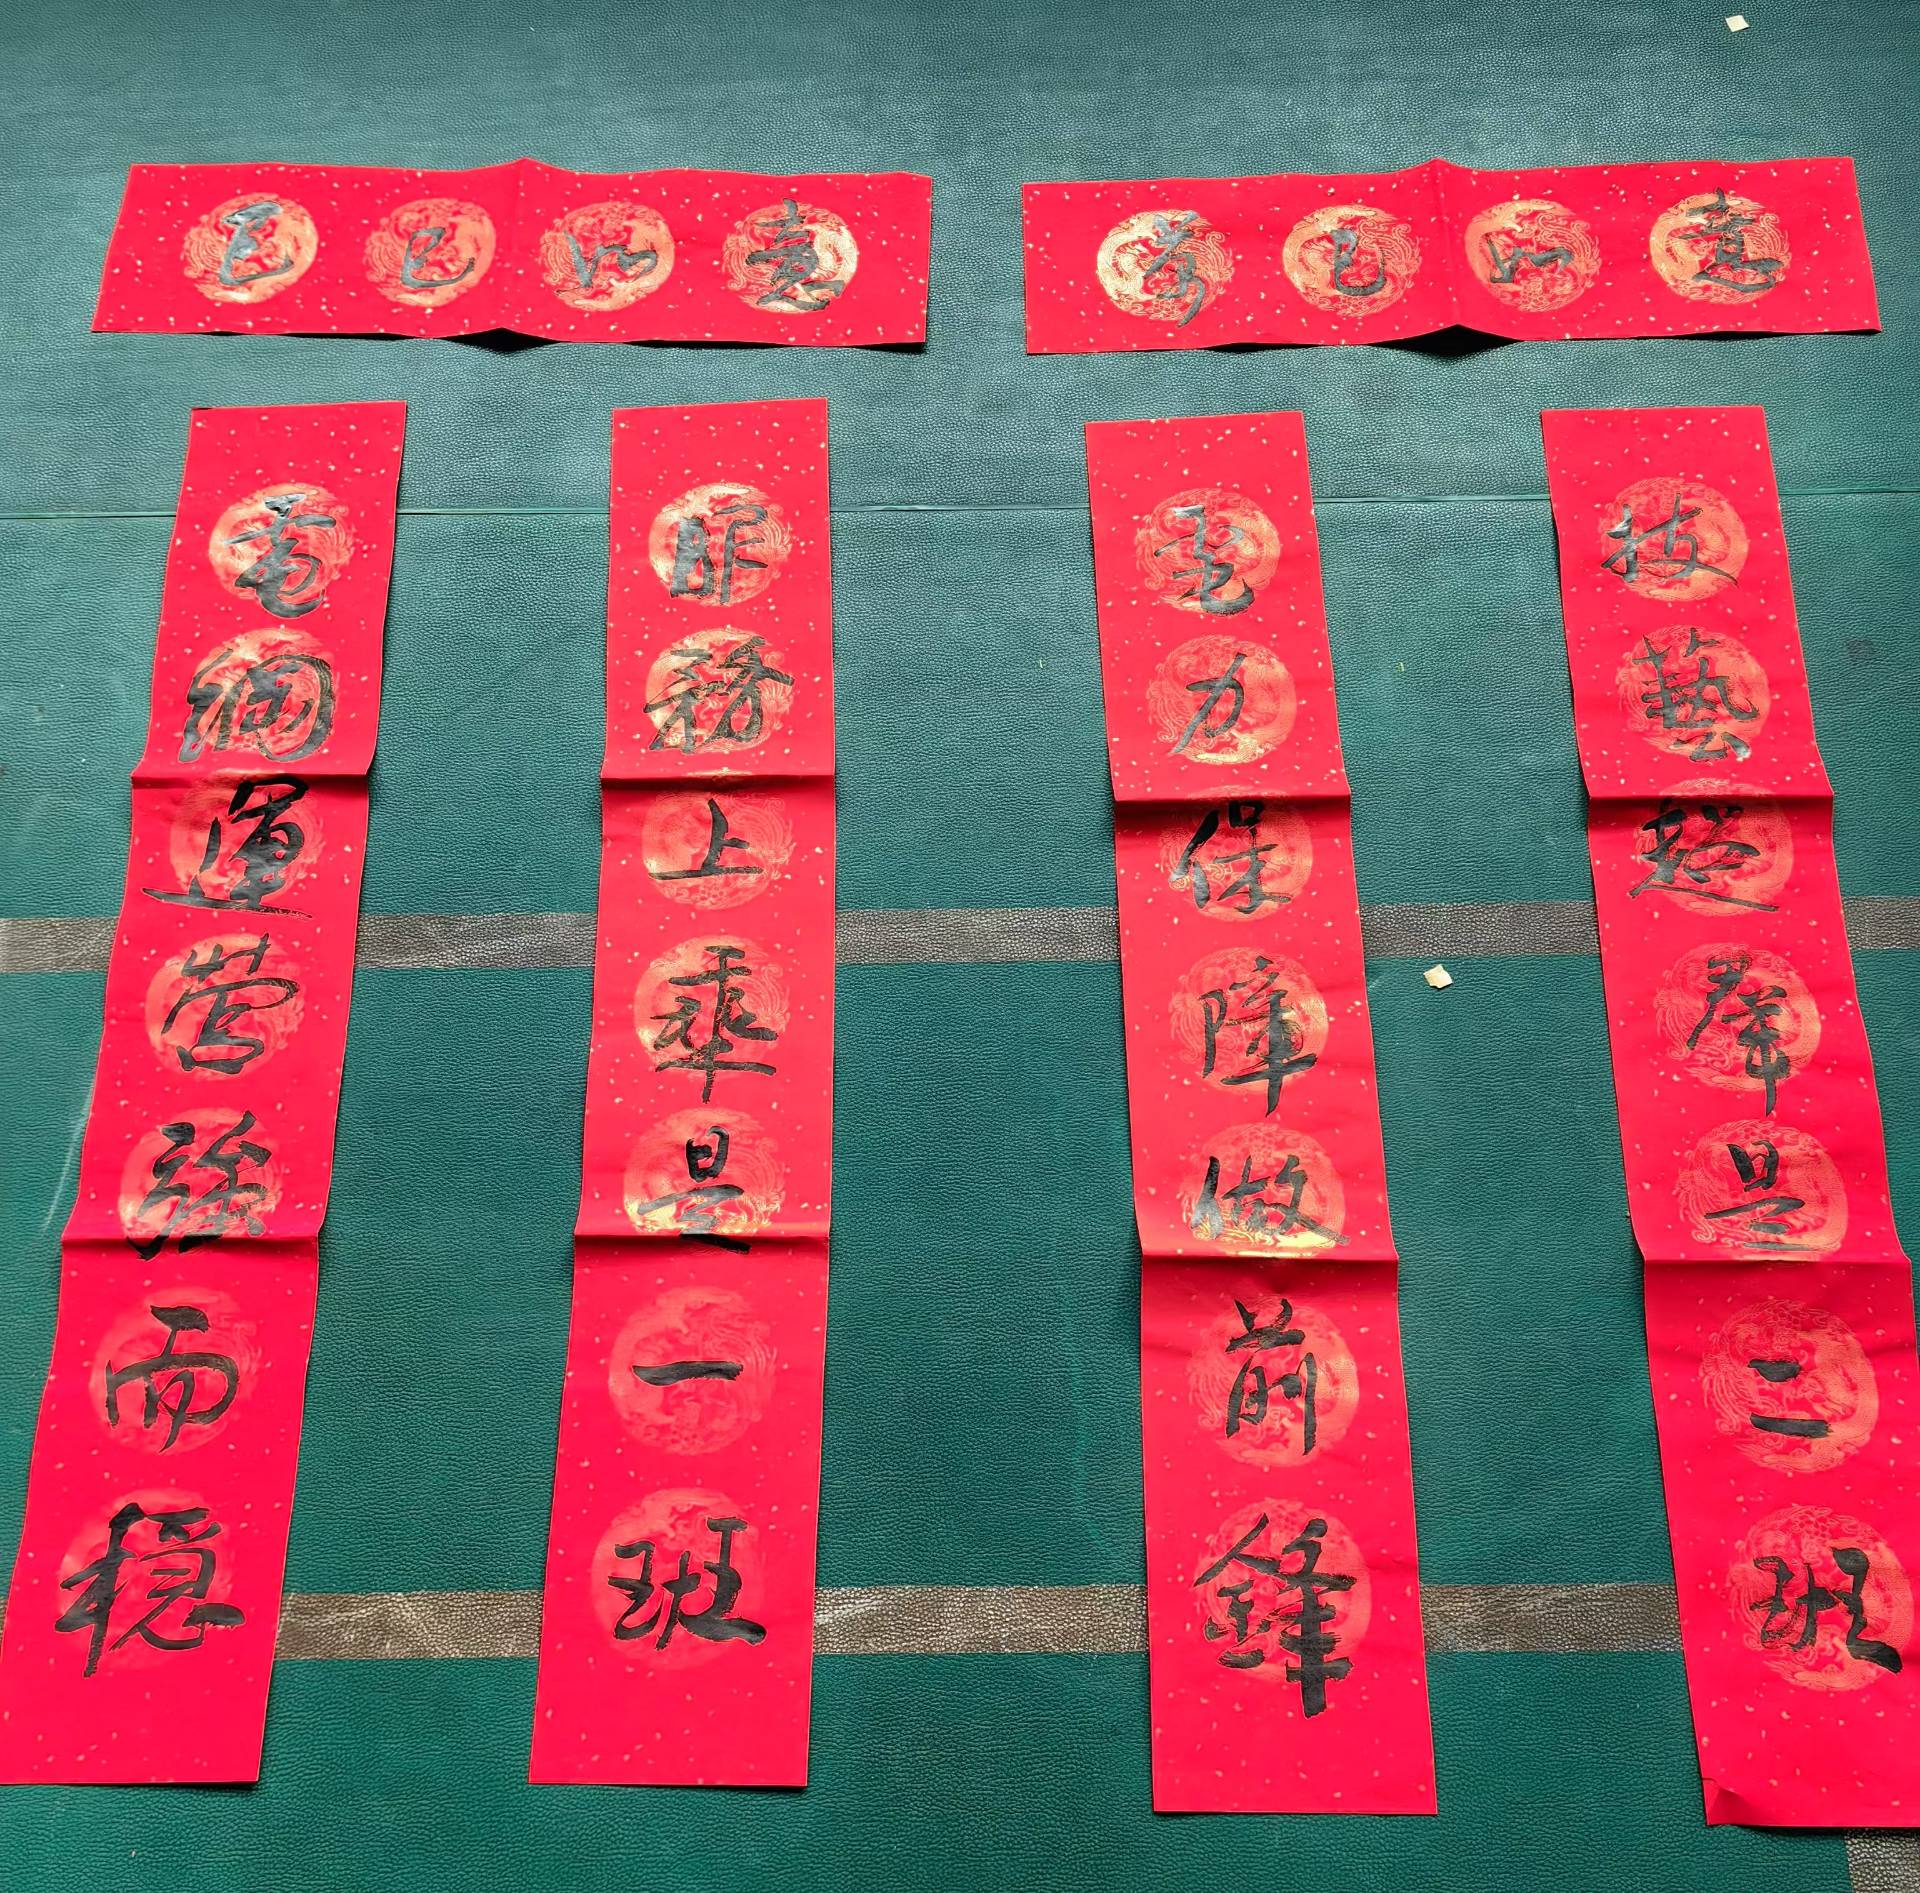 巳巳如意
萬巳如意
電網運營強而穩
服務上乘是一班
電力保障做前鋒
技藝超群是二班